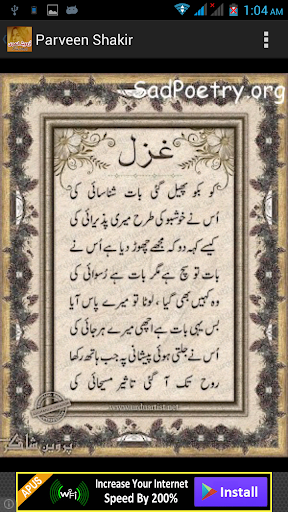 1:04 AM
Parveen Shakir
SadPoetry.org
غزل
کو بکو پھیل گئی بات شناسائی کی
اُس نے خوشبو کی طرح میری پذیرائی کی
کیسے کہہ دو کہ مجھے چھوڑ دیا ہے اُس نے
بات تو سچ ہے مگر بات ہے رُسوائی کی
وہ کہیں بھی گیا ، لوٹا تو میرے پاس آیا
بس یہی بات ہے اچھی میرے ہرجائی کی
اُس نے جلتی ہوئی پیشانی پہ جب ہاتھ رکھا
روح تک آ گئی تاثیر مسیحائی کی
www.urduartist.net
پروین شاکر
APUS
WiFi
Increase Your Internet
Speed By 200%
Install